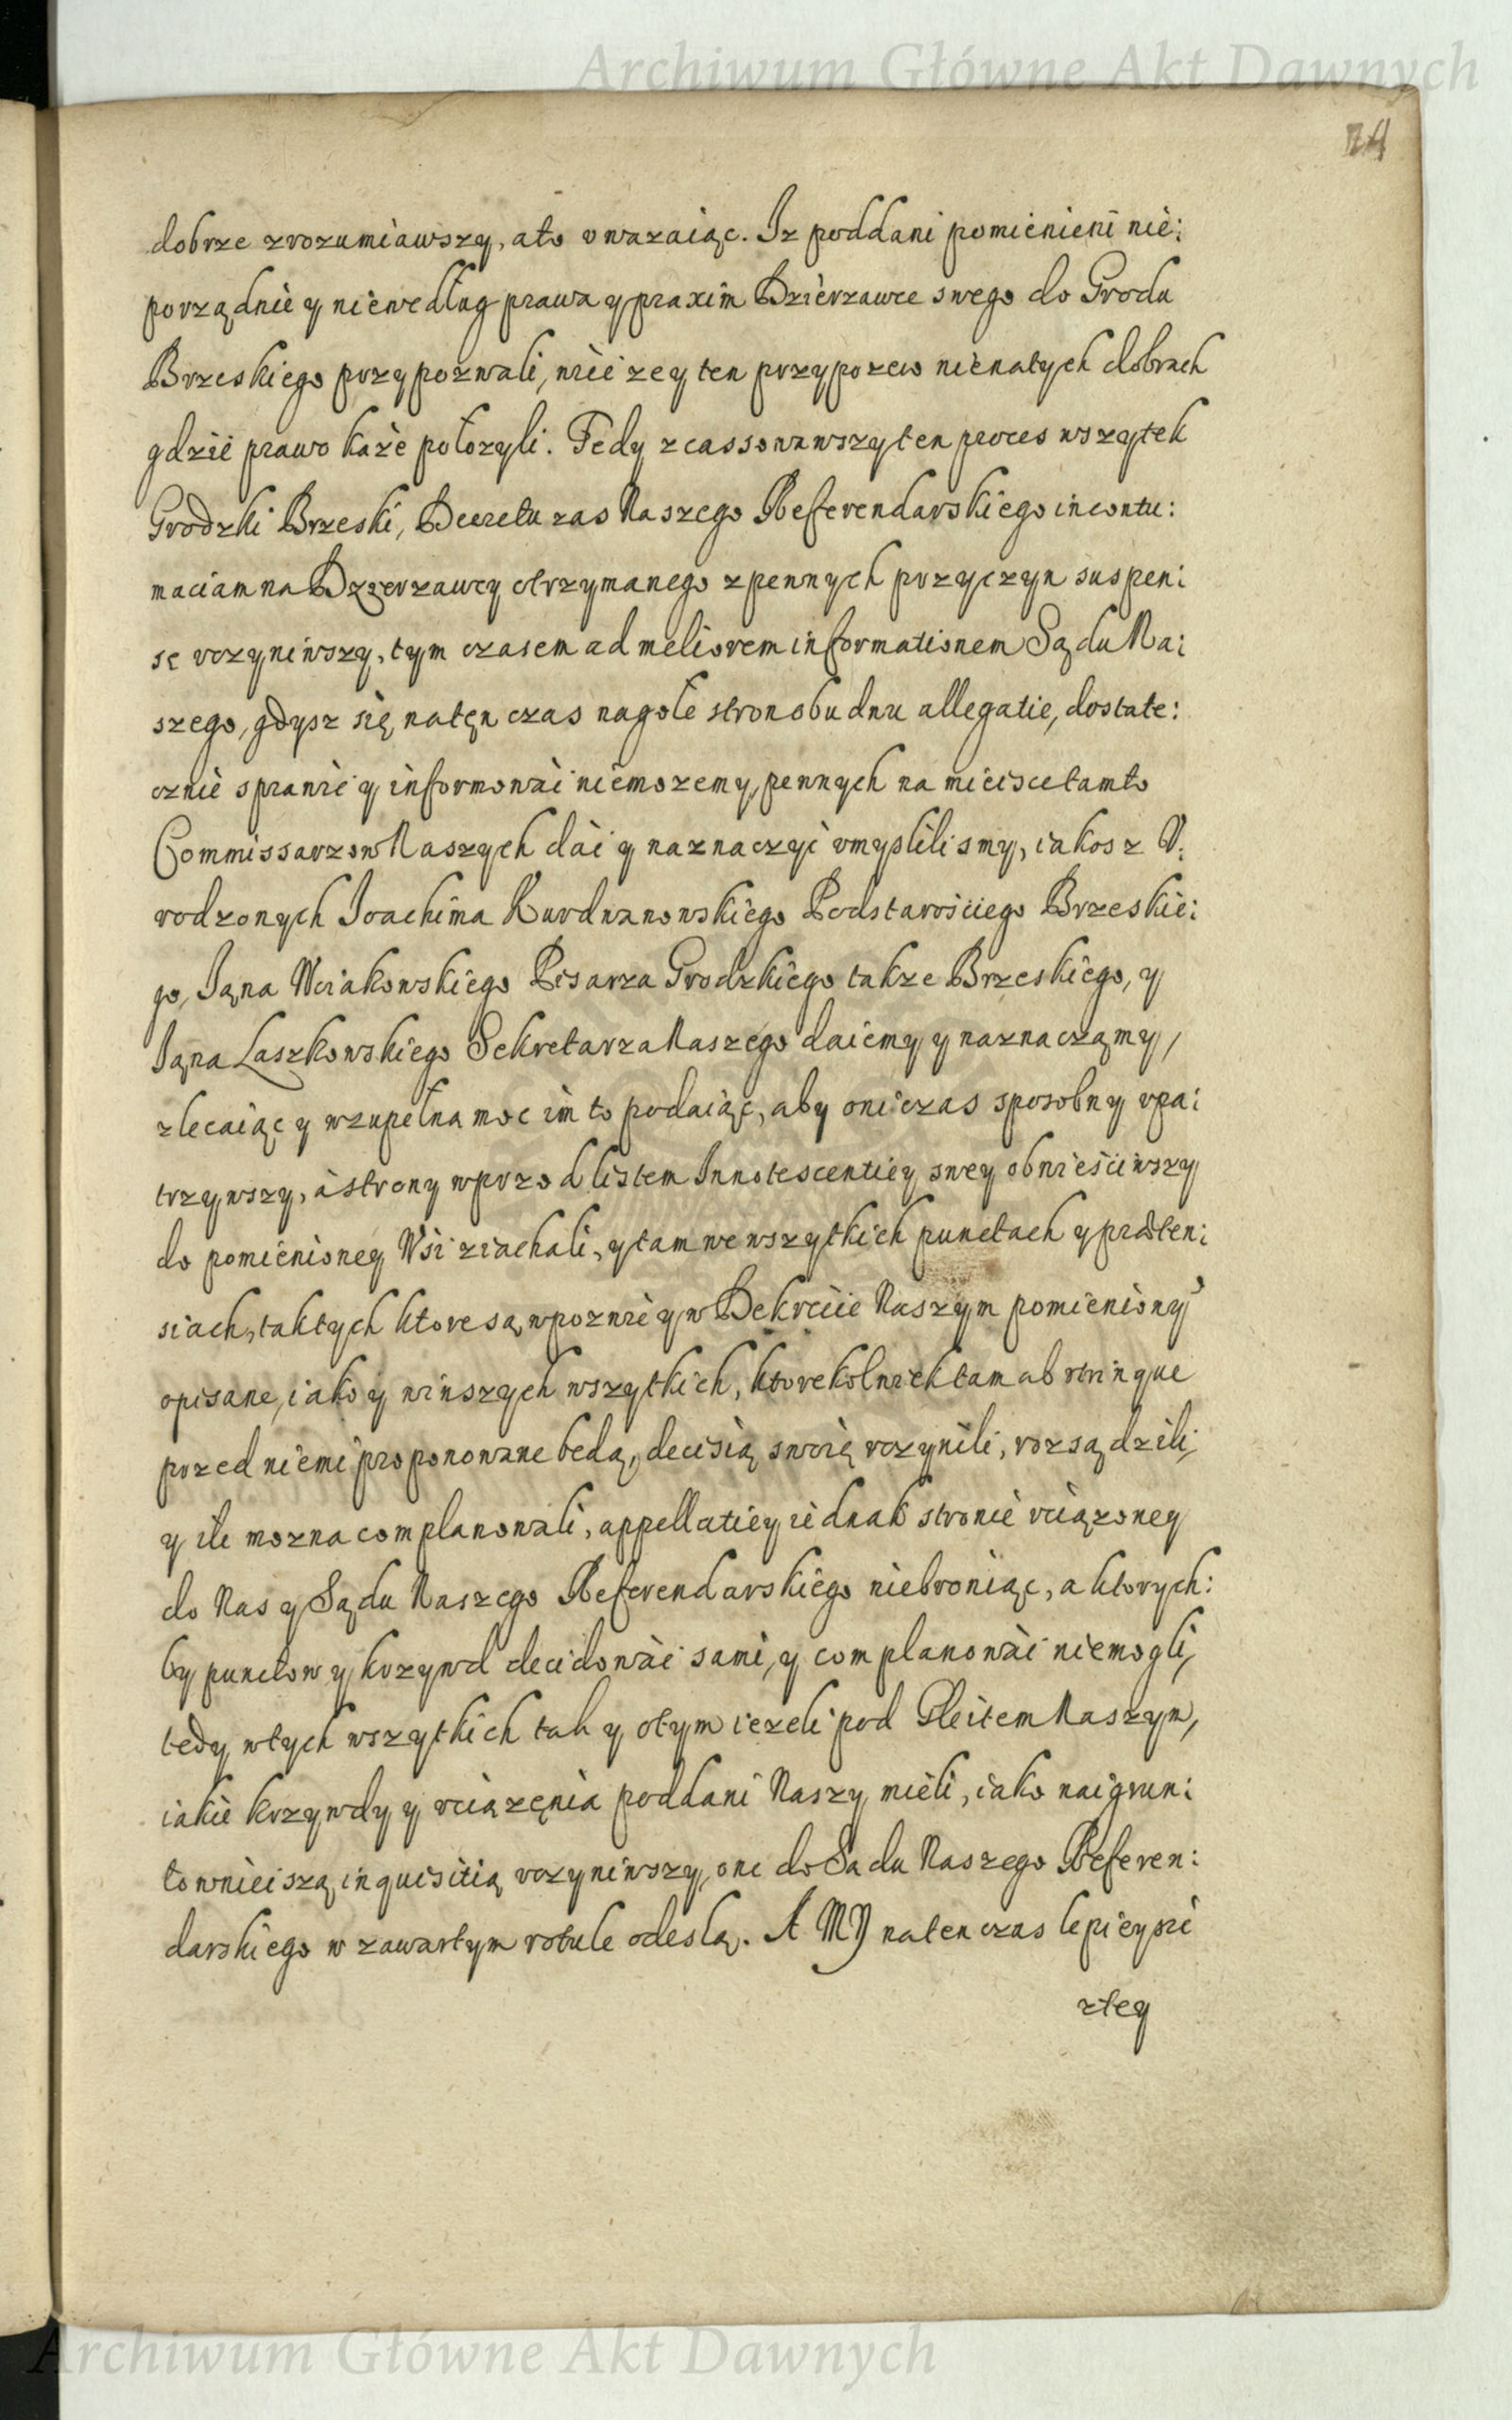 Archiwum Główne Akt Dawnych
74
dobrze zrozumiawszy, a to vwazaiąc. Iz poddani pomienieni nie:
porządnie y niewedług prawa y praxim Dzierzawce swego do Grodu
Brzeskiego przypozwali, wiec ze y ten przypozew nienatych dobrach
gdzie prawo każe położyli. Tedy zcassowawszy ten proces wszytek
Grodzki Brzeski, Decretu zas Naszego Referendarskiego in contu:
maciam na Dzierzawcy otrzymanego z pewnych przyczyn suspen:
se vczyniwszy, tym czasem ad meliorem informationem Sądu Na:
szego, gdysz się natęn czas nagołe stron obudwu allegatie, dostate:
cznie sprawić y informować niemozemy, pewnych na mieisce tamto
Commissarzow Naszych dać y naznaczyć vmyslilismy, iakosz V:
rodzonych Joachima Kurdwanowskiego Podstarościego Brzeskie:
go, Jana Wciakowskiego Pisarza Grodzkiego takze Brzeskiego, y
Jana Laszkowskiego Sekretarza Naszego daiemy y naznaczamy,
zlecaiąc y wzupełna moc im to podaiąc, aby oni czas sposobny vpa:
trzywszy, a strony wprzod listem Innotescentiey swey obwieściwszy
do pomienioney Wsi ziachali, y tam we wszytkich punctach y præten:
siach, tak tych ktore są w pozwie y w Dekrecie Naszym pomieniony
opisane, iako y winszych wszytkich, ktorekolwiek tam ab vtrinque
przed niemi proponowane będą, decisią swoię vczynili, rozsądzili,
y ile mozna complanowali, appellatiey iednak stronie vciązoney
do Nas y Sądu Naszego Referendarskiego niebroniąc, a ktorych:
by punctow y krzywd decidować sami, y complanować niemogli,
tedy wtych wszytkich tak y otym iezeli pod Gleitem Naszym,
iakie krzywdy y vciązęnia poddani Naszy mieli, iako naigrun:
townieiszą inquisitią vczyniwszy, one do Sądu Naszego Referen:
darskiego w zawartym rotule odesłą. A MY naten czas lepiey sie
ztey
Archiwum Główne Akt Dawnych